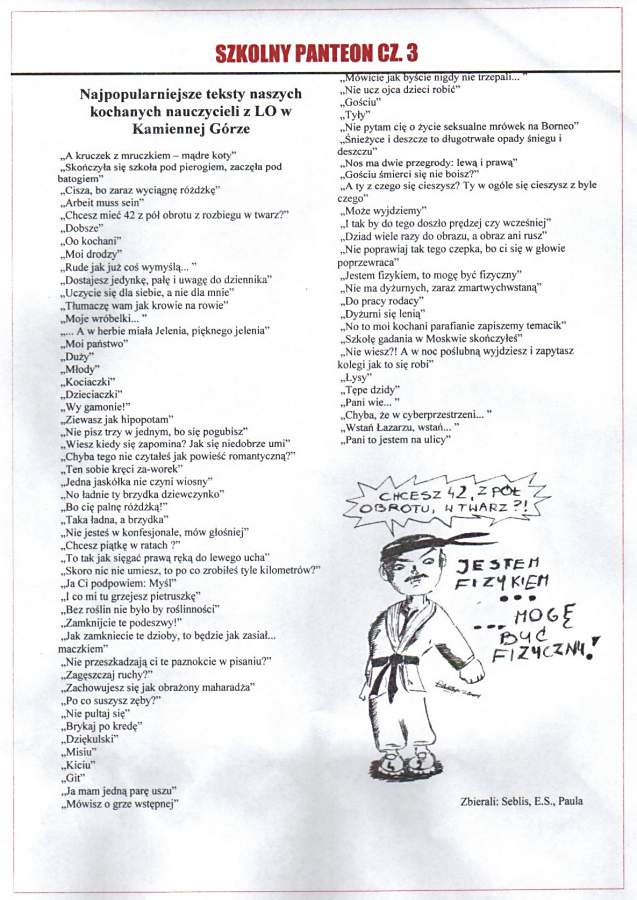 SZKOLNY PANTEON CZ. 3
Najpopularniejsze teksty naszych
kochanych nauczycieli z LO w
Kamiennej Górze
„A kruczek z mruczkiem – mądre koty”
„Skończyła się szkoła pod pierogiem, zaczęła pod
batogiem”
„Cisza, bo zaraz wyciągnę różdżkę”
„Arbeit muss sein”
„Chcesz mieć 42 z pół obrotu z rozbiegu w twarz?”
„Dobsze”
„Oo kochani”
„Moi drodzy”
„Rude jak już coś wymyślą... ”
„Dostajesz jedynkę, pałę i uwagę do dziennika”
„Uczycie się dla siebie, a nie dla mnie”
„Tłumaczę wam jak krowie na rowie”
„Moje wróbelki... ”
„... A w herbie miała Jelenia, pięknego jelenia”
„Moi państwo”
„Duży”
„Młody”
„Kociaczki”
„Dzieciaczki”
„Wy gamonie!”
„Ziewasz jak hipopotam”
„Nie pisz trzy w jednym, bo się pogubisz”
„Wiesz kiedy się zapomina? Jak się niedobrze umi”
„Chyba tego nie czytałeś jak powieść romantyczną?”
„Ten sobie kręci za-worek”
„Jedna jaskółka nie czyni wiosny”
„No ładnie ty brzydka dziewczynko”
„Bo cię palnę różdżką!”
„Taka ładna, a brzydka”
„Nie jesteś w konfesjonale, mów głośniej”
„Chcesz piątkę w ratach ?”
„To tak jak sięgać prawą ręką do lewego ucha”
„Skoro nic nie umiesz, to po co zrobiłeś tyle kilometrów?”
„Ja Ci podpowiem: Myśl”
„I co mi tu grzejesz pietruszkę”
„Bez roślin nie było by roślinności”
„Zamknijcie te podeszwy!”
„Jak zamkniecie te dzioby, to będzie jak zasiał...
maczkiem”
„Nie przeszkadzają ci te paznokcie w pisaniu?”
„Zagęszczaj ruchy?”
„Zachowujesz się jak obrażony maharadża”
„Po co suszysz zęby?”
„Nie pultaj się”
„Brykaj po kredę”
„Dziękulski”
„Misiu”
„Kiciu”
„Git”
„Ja mam jedną parę uszu”
„Mówisz o grze wstępnej”
„Mówicie jak byście nigdy nie trzepali... ”
„Nie ucz ojca dzieci robić”
„Gościu”
„Tyły”
„Nie pytam cię o życie seksualne mrówek na Borneo”
„Śnieżyce i deszcze to długotrwałe opady śniegu i
deszczu”
„Nos ma dwie przegrody: lewą i prawą”
„Gościu śmierci się nie boisz?”
„A ty z czego się cieszysz? Ty w ogóle się cieszysz z byle
czego”
„Może wyjdziemy”
„I tak by do tego doszło prędzej czy wcześniej”
„Dziad wiele razy do obrazu, a obraz ani rusz”
„Nie poprawiaj tak tego czepka, bo ci się w głowie
poprzewraca”
„Jestem fizykiem, to mogę być fizyczny”
„Nie ma dyżurnych, zaraz zmartwychwstaną”
„Do pracy rodacy”
„Dyżurni się lenią”
„No to moi kochani parafianie zapiszemy temacik”
„Szkołę gadania w Moskwie skończyłeś”
„Nie wiesz?! A w noc poślubną wyjdziesz i zapytasz
kolegi jak to się robi”
„Łysy”
„Tępe dzidy”
„Pani wie... ”
„Chyba, że w cyberprzestrzeni... ”
„Wstań Łazarzu, wstań... ”
„Pani to jestem na ulicy”
CHCESZ 42, Z PÓŁ
OBROTU, W TWARZ?!
JESTEM
FIZYKIEM
...
... MOGĘ
BYĆ
FIZYCZNY!
Zbierali: Seblis, E.S., Paula